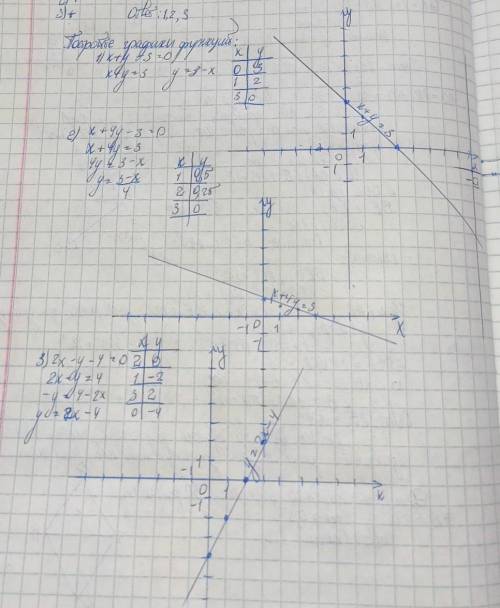 3) +
Ответ: 1,2,3
Постройте графики функции:
1) x+y-3=0
x+y=3 y=3-x
x y
0 3
1 2
3 0
y
x+y=3
1
0 1
-1
2) x+4y-3=0
x+4y=3
4y=3-x
y=3-x
4
x y
1 0,5
2 0,25
3 0
y
x+4y=3
-1 0 1
-1
x
3) 2x-y-4=0
2x-y=4
-y=4-2x
y=2x-4
x y
2 0
1 -2
3 2
0 -4
y
y=2x-4
1
-1
0 1
-1
x